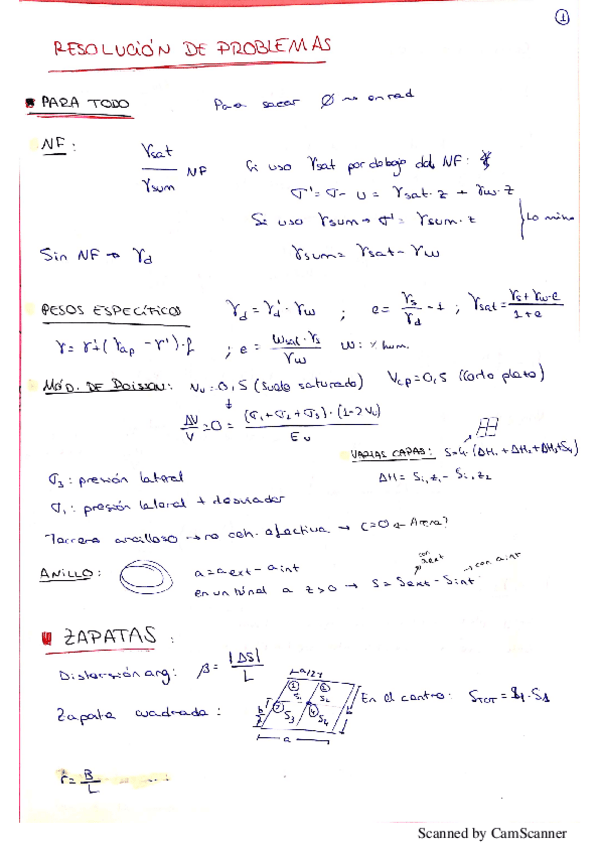 1
RESOLUCIÓN DE PROBLEMAS
PARA TODO Para sacar Ø no en rad
NF: γsat / γsum NF Si uso γsat por debajo del NF:
σ' = σ - u = γsat · z + γw · z
Si uso γsum → σ' = γsum · z } Lo mismo
Sin NF → γd γsum = γsat - γw
PESOS ESPECÍFICOS γd = γd' · γw ; e = γs/γd - 1 ; γsat = (γs + γw·e)/(1+e)
γ = γ' + (γap - γ') · f ; e = (wsat · γs)/γw w: % hum.
MÓD. DE POISSON: νu = 0,5 (Suelo saturado) νcp = 0,5 (Corto plazo)
ΔV/V = 0 = (σ1 + σ2 + σ3) · (1-2νu) / Eu
VARIAS CAPAS: S=4·(ΔH1 + ΔH2 + ΔH3 + S4)
σ3: presión lateral ΔH = Si,z1 - Si,z2
σ1: presión lateral + desviador
Terreno arcilloso → no coh. efectiva → C=0 ← Arena?
ANILLO: a = aext - aint
en un túnel a z>0 → S = Sext - Sint
con aext → con aint
ZAPATAS:
Distorsión ang: β = |ΔS|/L
Zapata cuadrada: En el centro: STOT = 4 · S1
a/2 1 2 S1 S2 3 4 S3 S4 b/2 a
r = B/L
Scanned by CamScanner